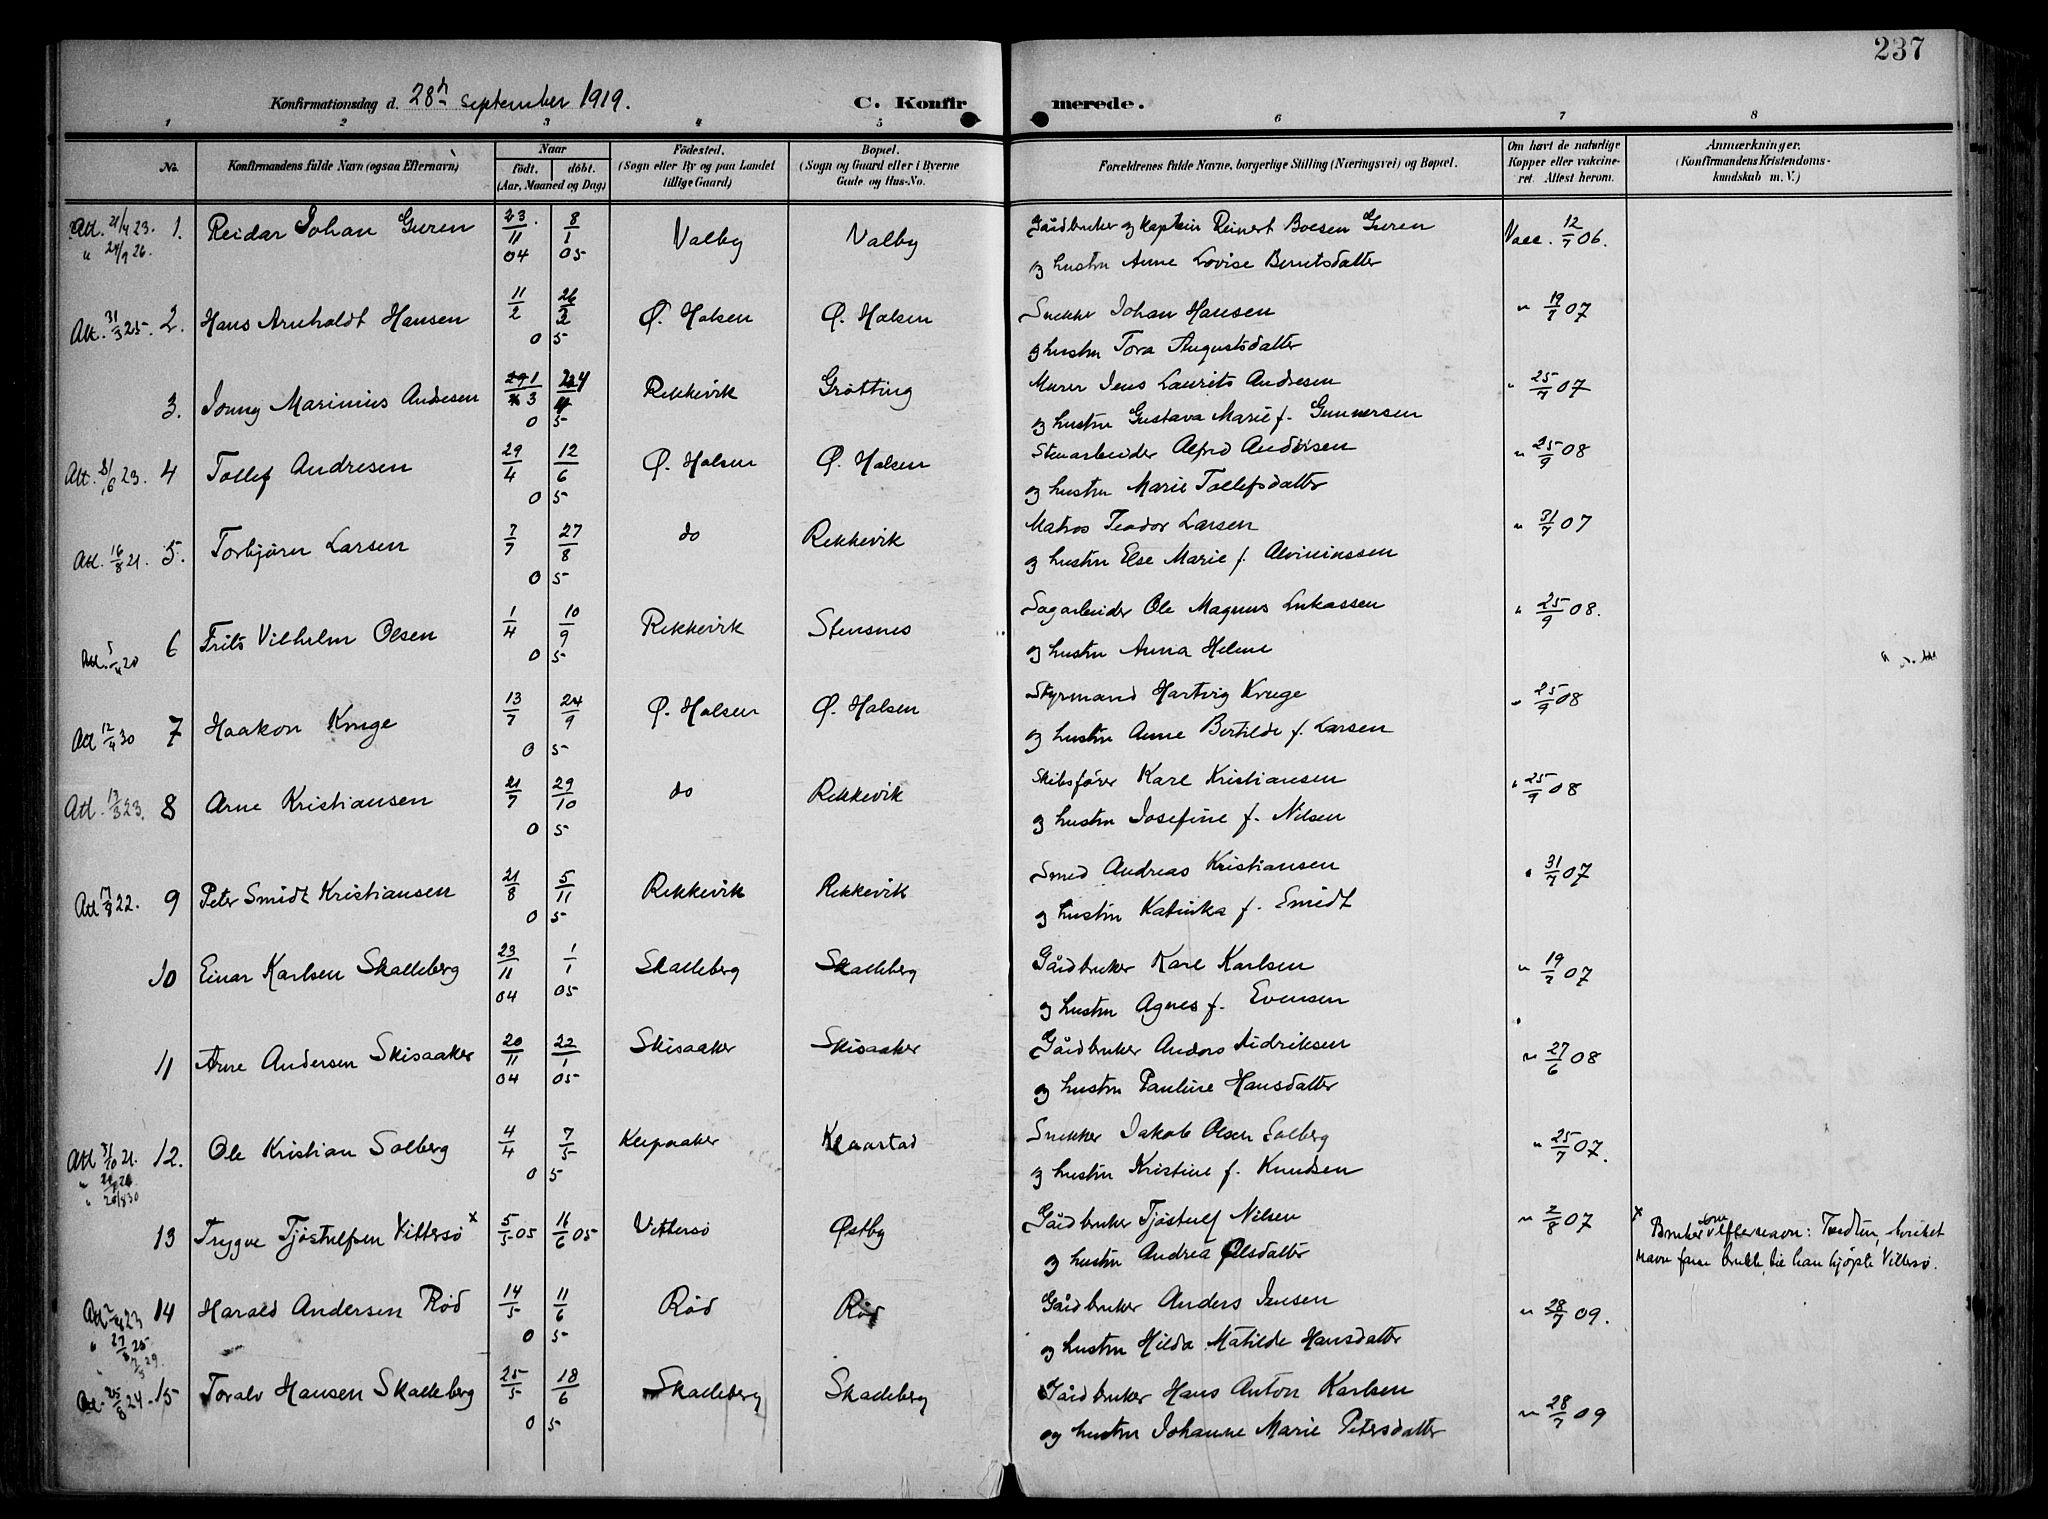 237
Konfirmationsdag d. 28de september 1919. C. Konfirmerede.
1 2 3 4 5 6 7 8
No. Konfirmandens fulde Navn (ogsaa Efternavn) Naar født. døbt. (Aar, Maaned og Dag) Fødested. (Sogn eller By og paa Landet tillige Gaard) Bopæl. (Sogn og Gaard eller i Byerne Gade og Hus-No. Forældrenes fulde Navne, borgerlige Stilling (Næringsvei) og Bopæl. Om havt de naturlige Kopper eller vakcineret. Attest herom. Anmærkninger. (Konfirmandens Kristendomskundskab m. V.)
Att. 21/4 23. 1. Reidar Johan Guren 23/11 04 8/1 05 Valby Valby Gårdbruker og kaptein Reinert Boesen Guren Vacc. 12/7 06.
og hustru Anne Lovise Berntsdatter
Att. 31/3 25. 2. Hans Arnholdt Hansen 11/2 26/2 05 Ø. Halsen Ø. Halsen Snekker Johan Hansen " 19/7 07
og hustru Tora Augustsdatter
3. Jonny Marinius Andresen 05 Rekkevik Grøtting Murer Jens Laurits Andresen " 25/7 07
og hustru Gustava Marie f. Gunnersen
Att. 23. 4 Tollef Andresen 29/4 12/6 05 Ø. Halsen Ø. Halsen Stenarbeider Alfred Andersen " 25/9 08
og hustru Marie Tollefsdatter
Att. 16/8 21. 5. Torbjørn Larsen 7/7 27/8 05 do Rekkevik Matros Teodor Larsen " 31/7 07
og hustru Else Marie f. Alviniussen
Att. 5/4 20 6 Frits Vilhelm Olsen 1/4 10/9 05 Rekkevik Stensnes Sagarbeider Ole Magnus Lukassen " 25/9 08.
og hustru Anna Helene
Att 12/4 30 7 Haakon Kruge 13/7 24/9 05 Ø. Halsen Ø. Halsen Styrmand Hartvig Kruge " 25/9 08
og hustru Anne Bertilde f. Larsen
Att. 13/3 23. 8 Arne Kristiansen 21/7 29/10 05 do Rekkevik Skibsfører Karl Kristiansen " 25/9 08
og hustru Josefine f. Nilsen
Att 22. 9 Peter Smidt Kristiansen 21/8 5/11 05 Rekkevik Rekkevik Smed Andreas Kristiansen " 31/7 07
og hustru Katinka f. Smidt
10 Einar Karlsen Skalleberg 23/11 04 1/1 05 Skalleberg Skalleberg Gårdbruker Karl Karlsen " 19/7 07
og hustru Agnes f. Evensen
11 Arne Andersen Skisaaker 20/11 04 22/1 05 Skisaaker Skisaaker Gårdbruker Anders Didriksen " 27/6 08
og hustru Pauline Hansdatter
Att 21. 12. Ole Kristian Solberg 4/4 7/5 05 Klepaaker Klaastad Snekker Jakob Olsen Solberg " 25/7 07.
og hustru Kristine f. Knudsen
" 20/8 30
13 Trygve Tjøstulfsen Vittersø x 5/5 05 16/6 05 Vittersø Østby Gårdbruker Tjøstulf Nilsen " 2/8 07 x Bruker som efternavn: hvilket
og hustru Andrea Olsdatter navn faren brukte, da han kjøpte Vittersø.
Att 23 14 Harald Andersen Rød 14/5 11/6 05 Rød Rød Gårdbruker Anders Jensen " 28/7 09.
og hustru Hilda Matilde Hansdatter
Att. 25/8 24. 15 Toralv Hansen Skalleberg 25/5 18/6 05 Skalleberg Skalleberg Gårdbruker Hans Anton Karlsen " 28/7 09
og hustru Johanne Marie Petersdatter